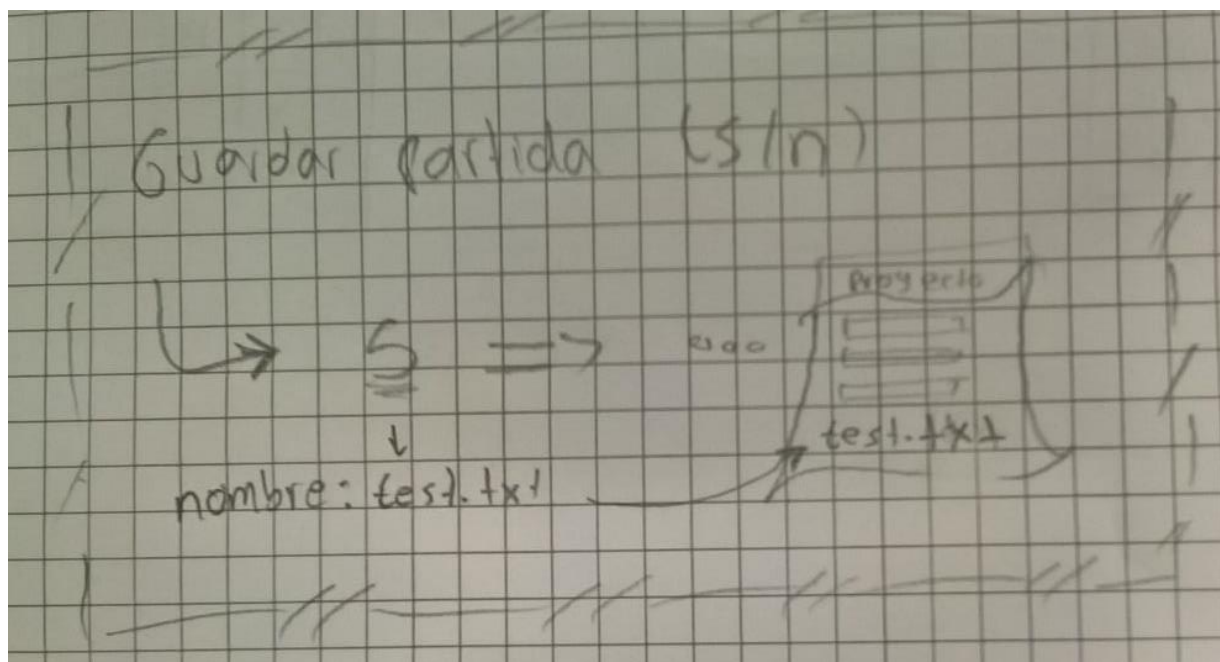 Guardar partida (s/n)
Proyecto
S =>
test.txt
nombre: test.txt